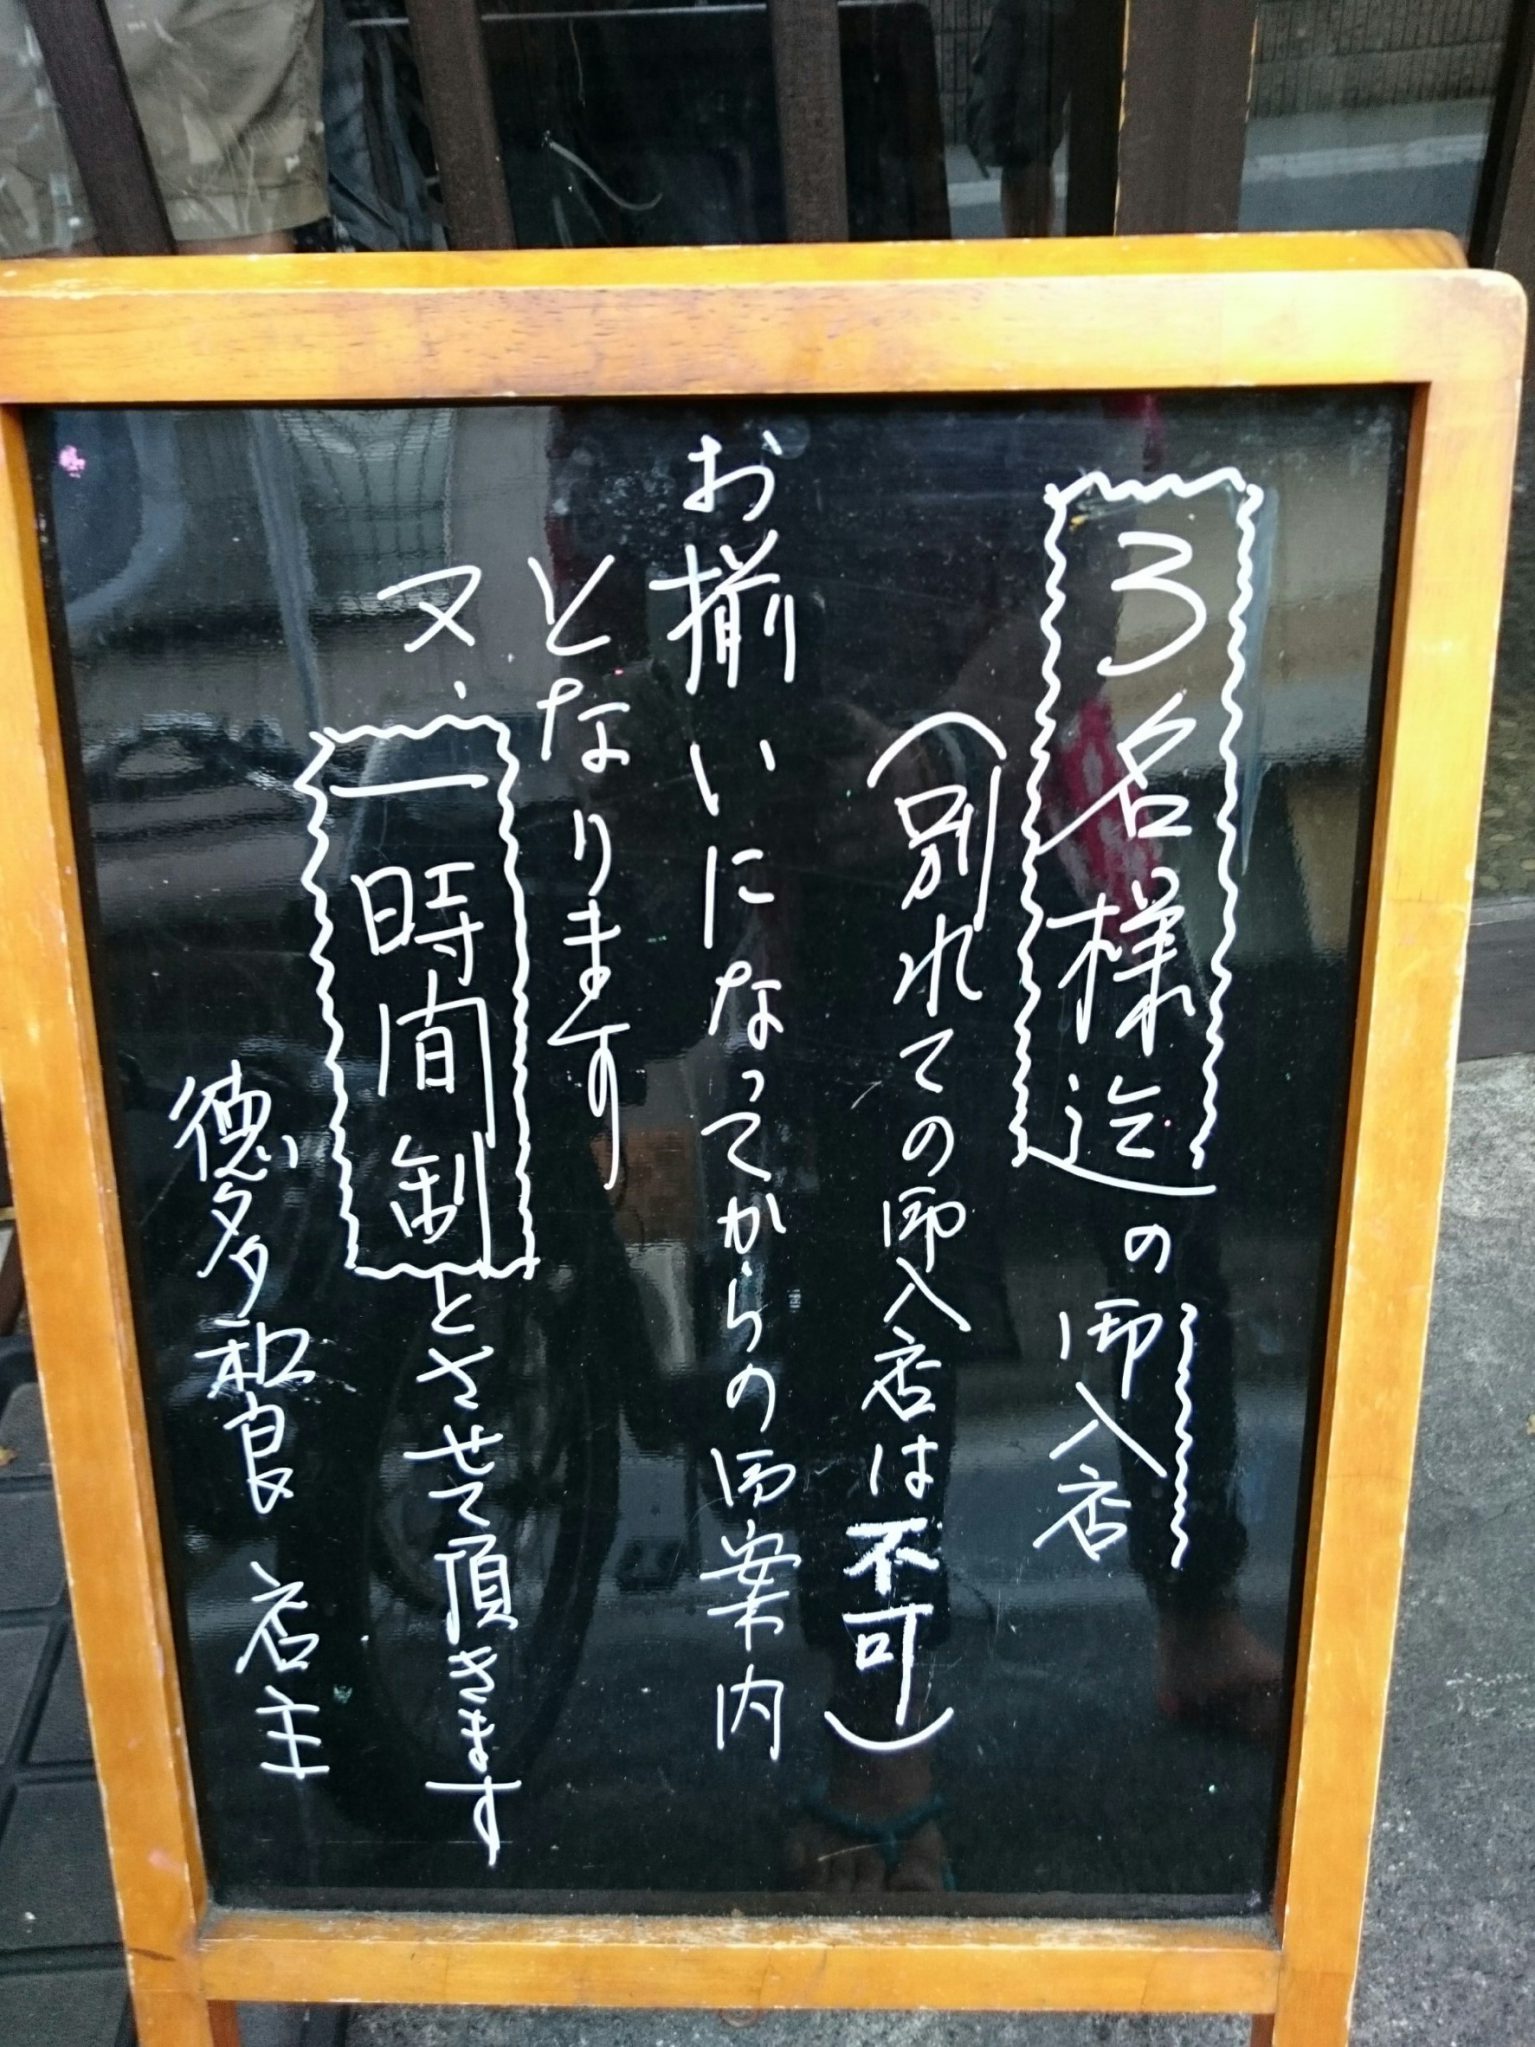 3名様迄の御入店
(別れての御入店は不可)
お揃いになってからの御案内
となります
又、一時間制とさせて頂きます
徳多和良 店主